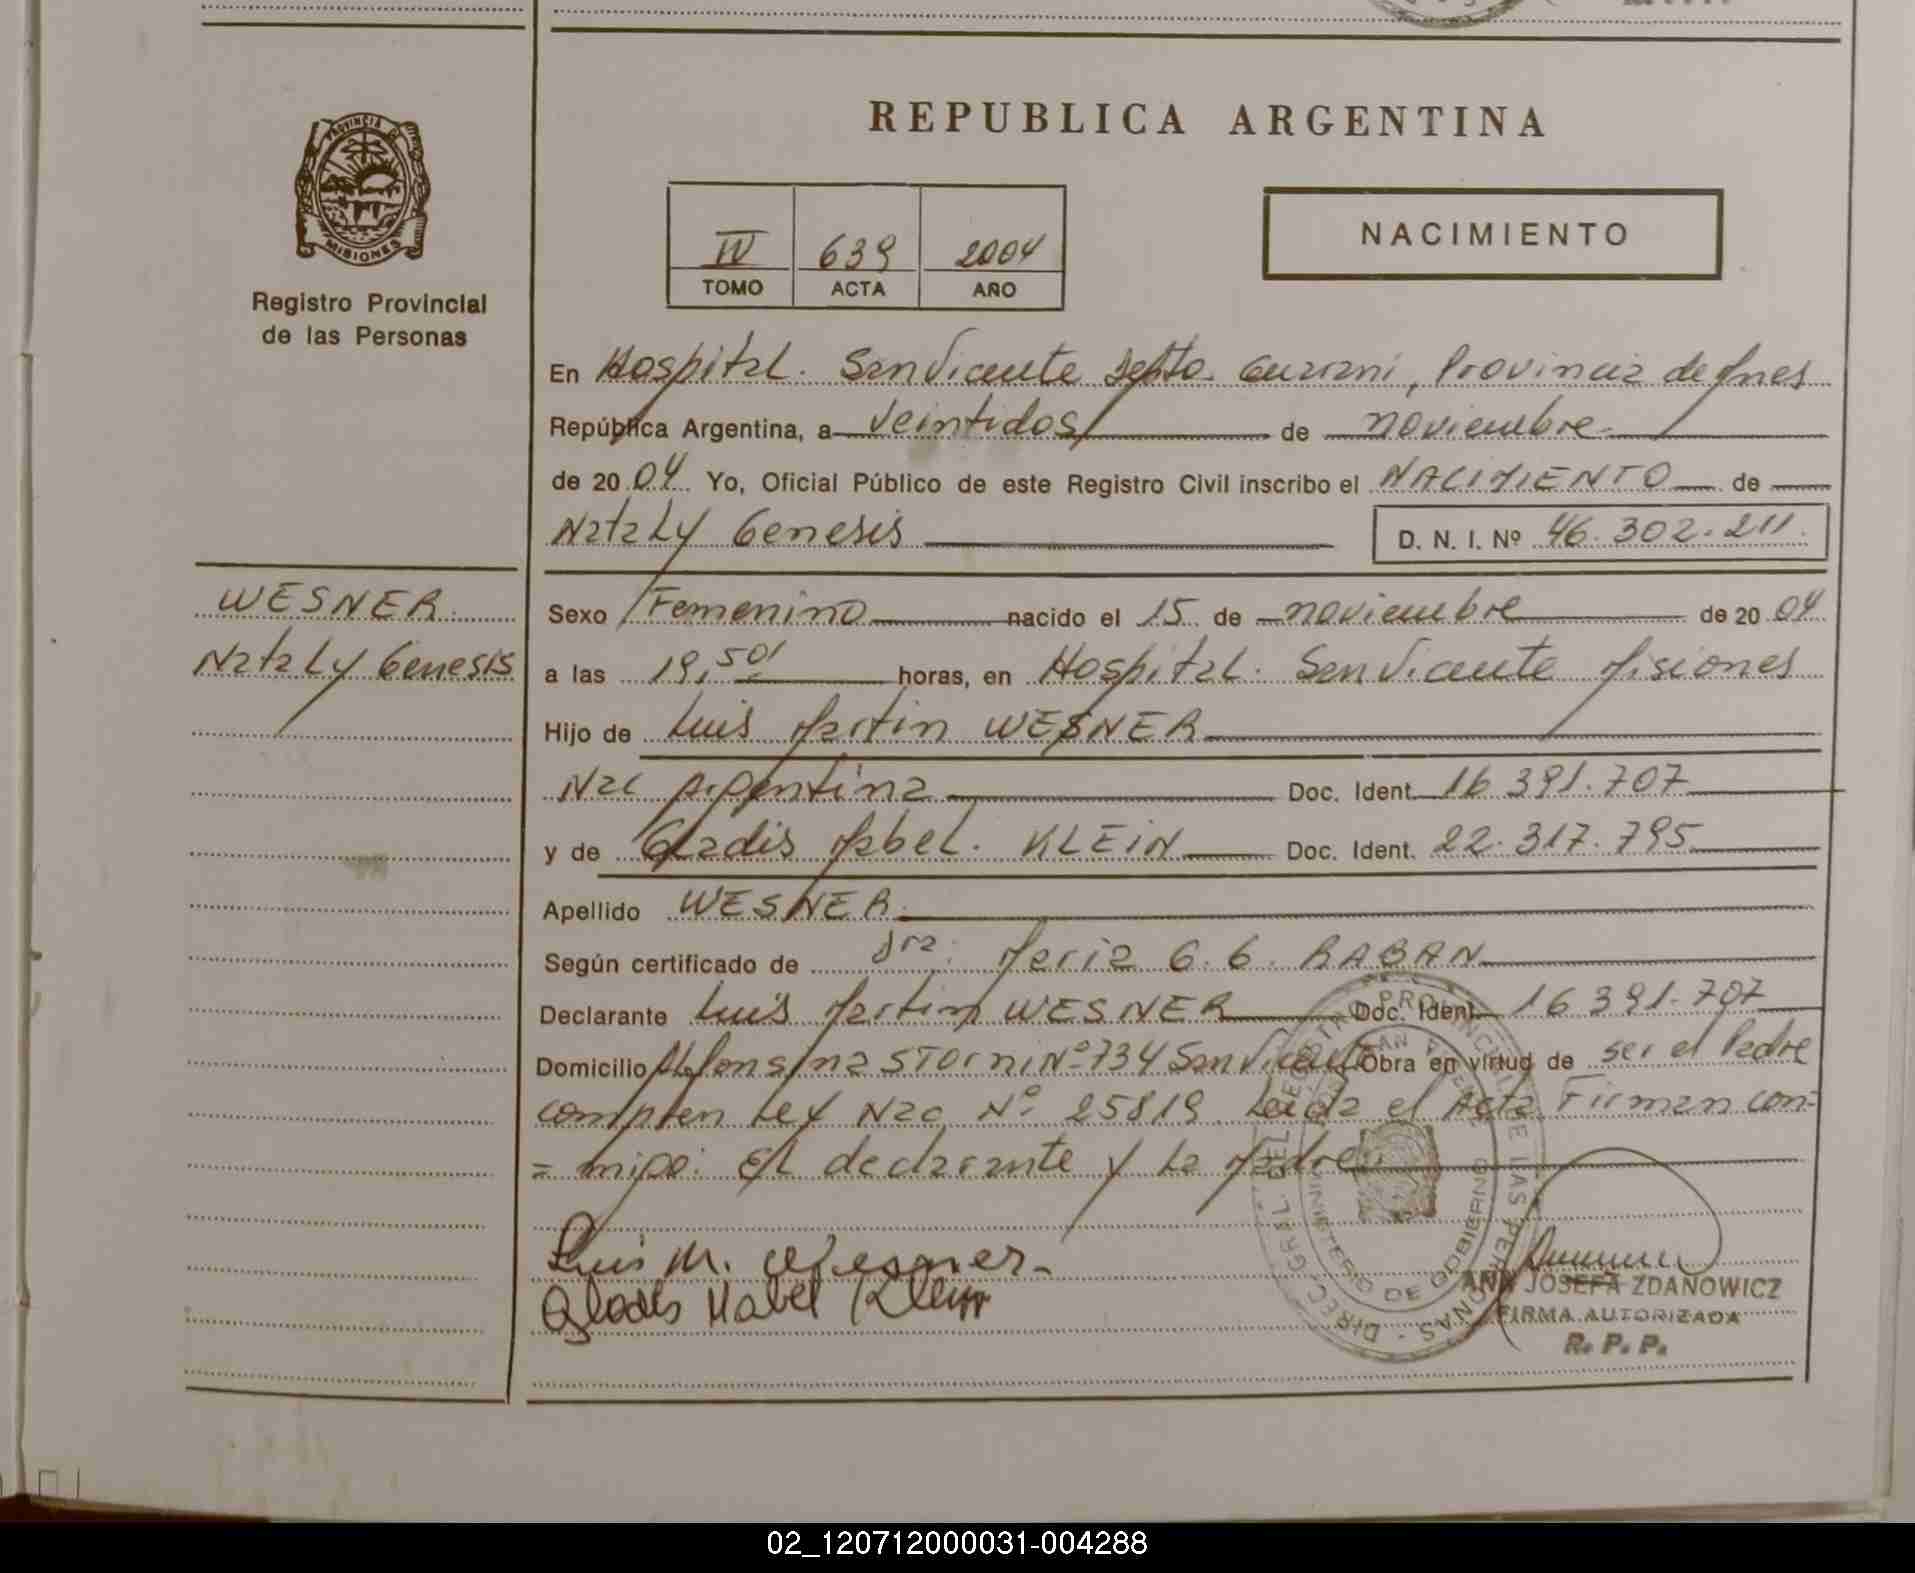 PROVINCIA DE
MISIONES
Registro Provincial
de las Personas
REPUBLICA ARGENTINA
IV 639 2004
TOMO ACTA AÑO
NACIMIENTO
En Hospital. San Vicente Depto. Guaraní, Provincia de Mnes
República Argentina, a veintidos de noviembre
de 2004 Yo, Oficial Público de este Registro Civil inscribo el NACIMIENTO de
Nataly Genesis D. N. I. Nº 46.302.211.
WESNER
Nataly Genesis
Sexo Femenino nacido el 15 de noviembre de 2004
a las 19,50' horas, en Hospital. San Vicente Misiones
Hijo de Luis Martin WESNER
Nac Argentina Doc. Ident. 16.391.707
y de Gladis Mabel. KLEIN Doc. Ident. 22.317.795
Apellido WESNER
Según certificado de Dra. Maria G. G. RABAN
Declarante Luis Martin WESNER Doc. Ident. 16.391.707
Domicilio Alfonsina STOrni Nº 734 San Vicente Obra en virtud de ser el Padre
Ley Nac. Nº 25819. Leida el Acta Firman con=
= migo: El declarante y La Madre
Luis M. Wesner
Gladis Mabel Klein
DIREC. GRAL. DEL REGISTRO PROVINCIAL DE LAS PERSONAS
MINISTERIO DE GOBIERNO
ANA JOSEFA ZDANOWICZ
FIRMA AUTORIZADA
R. P. P.
02_120712000031-004288